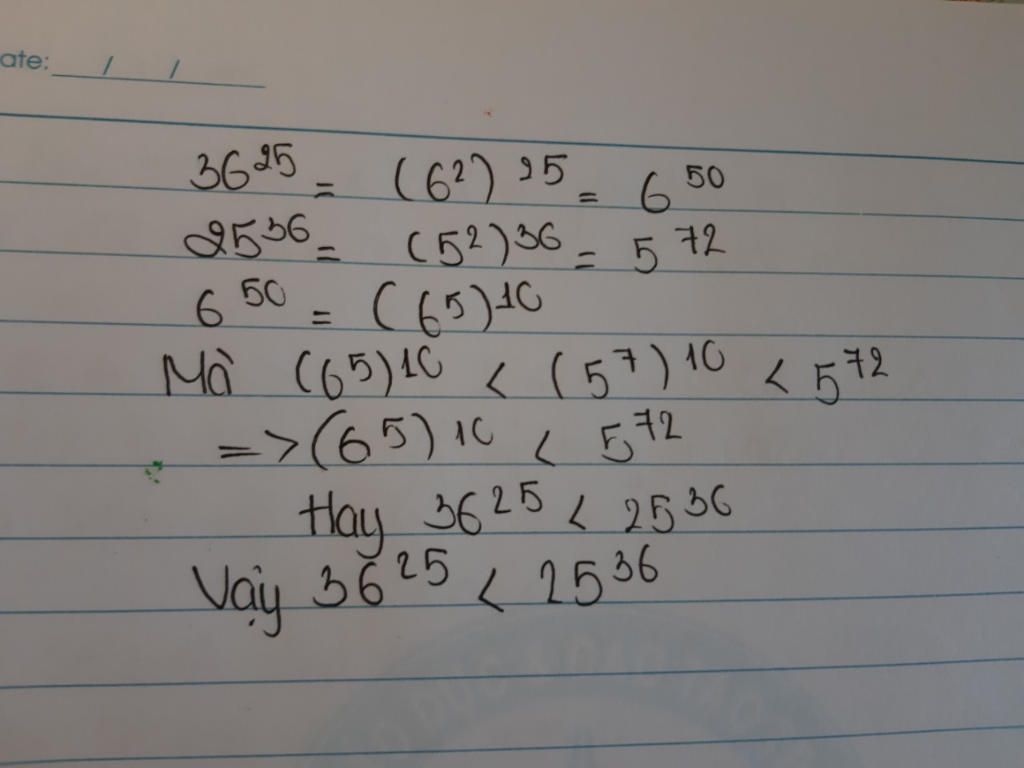 ate: / /
36²⁵ = (6²)²⁵ = 6⁵⁰
25³⁶ = (5²)³⁶ = 5⁷²
6⁵⁰ = (6⁵)¹⁰
Mà (6⁵)¹⁰ < (5⁷)¹⁰ < 5⁷²
=> (6⁵)¹⁰ < 5⁷²
Hay 36²⁵ < 25³⁶
Vậy 36²⁵ < 25³⁶